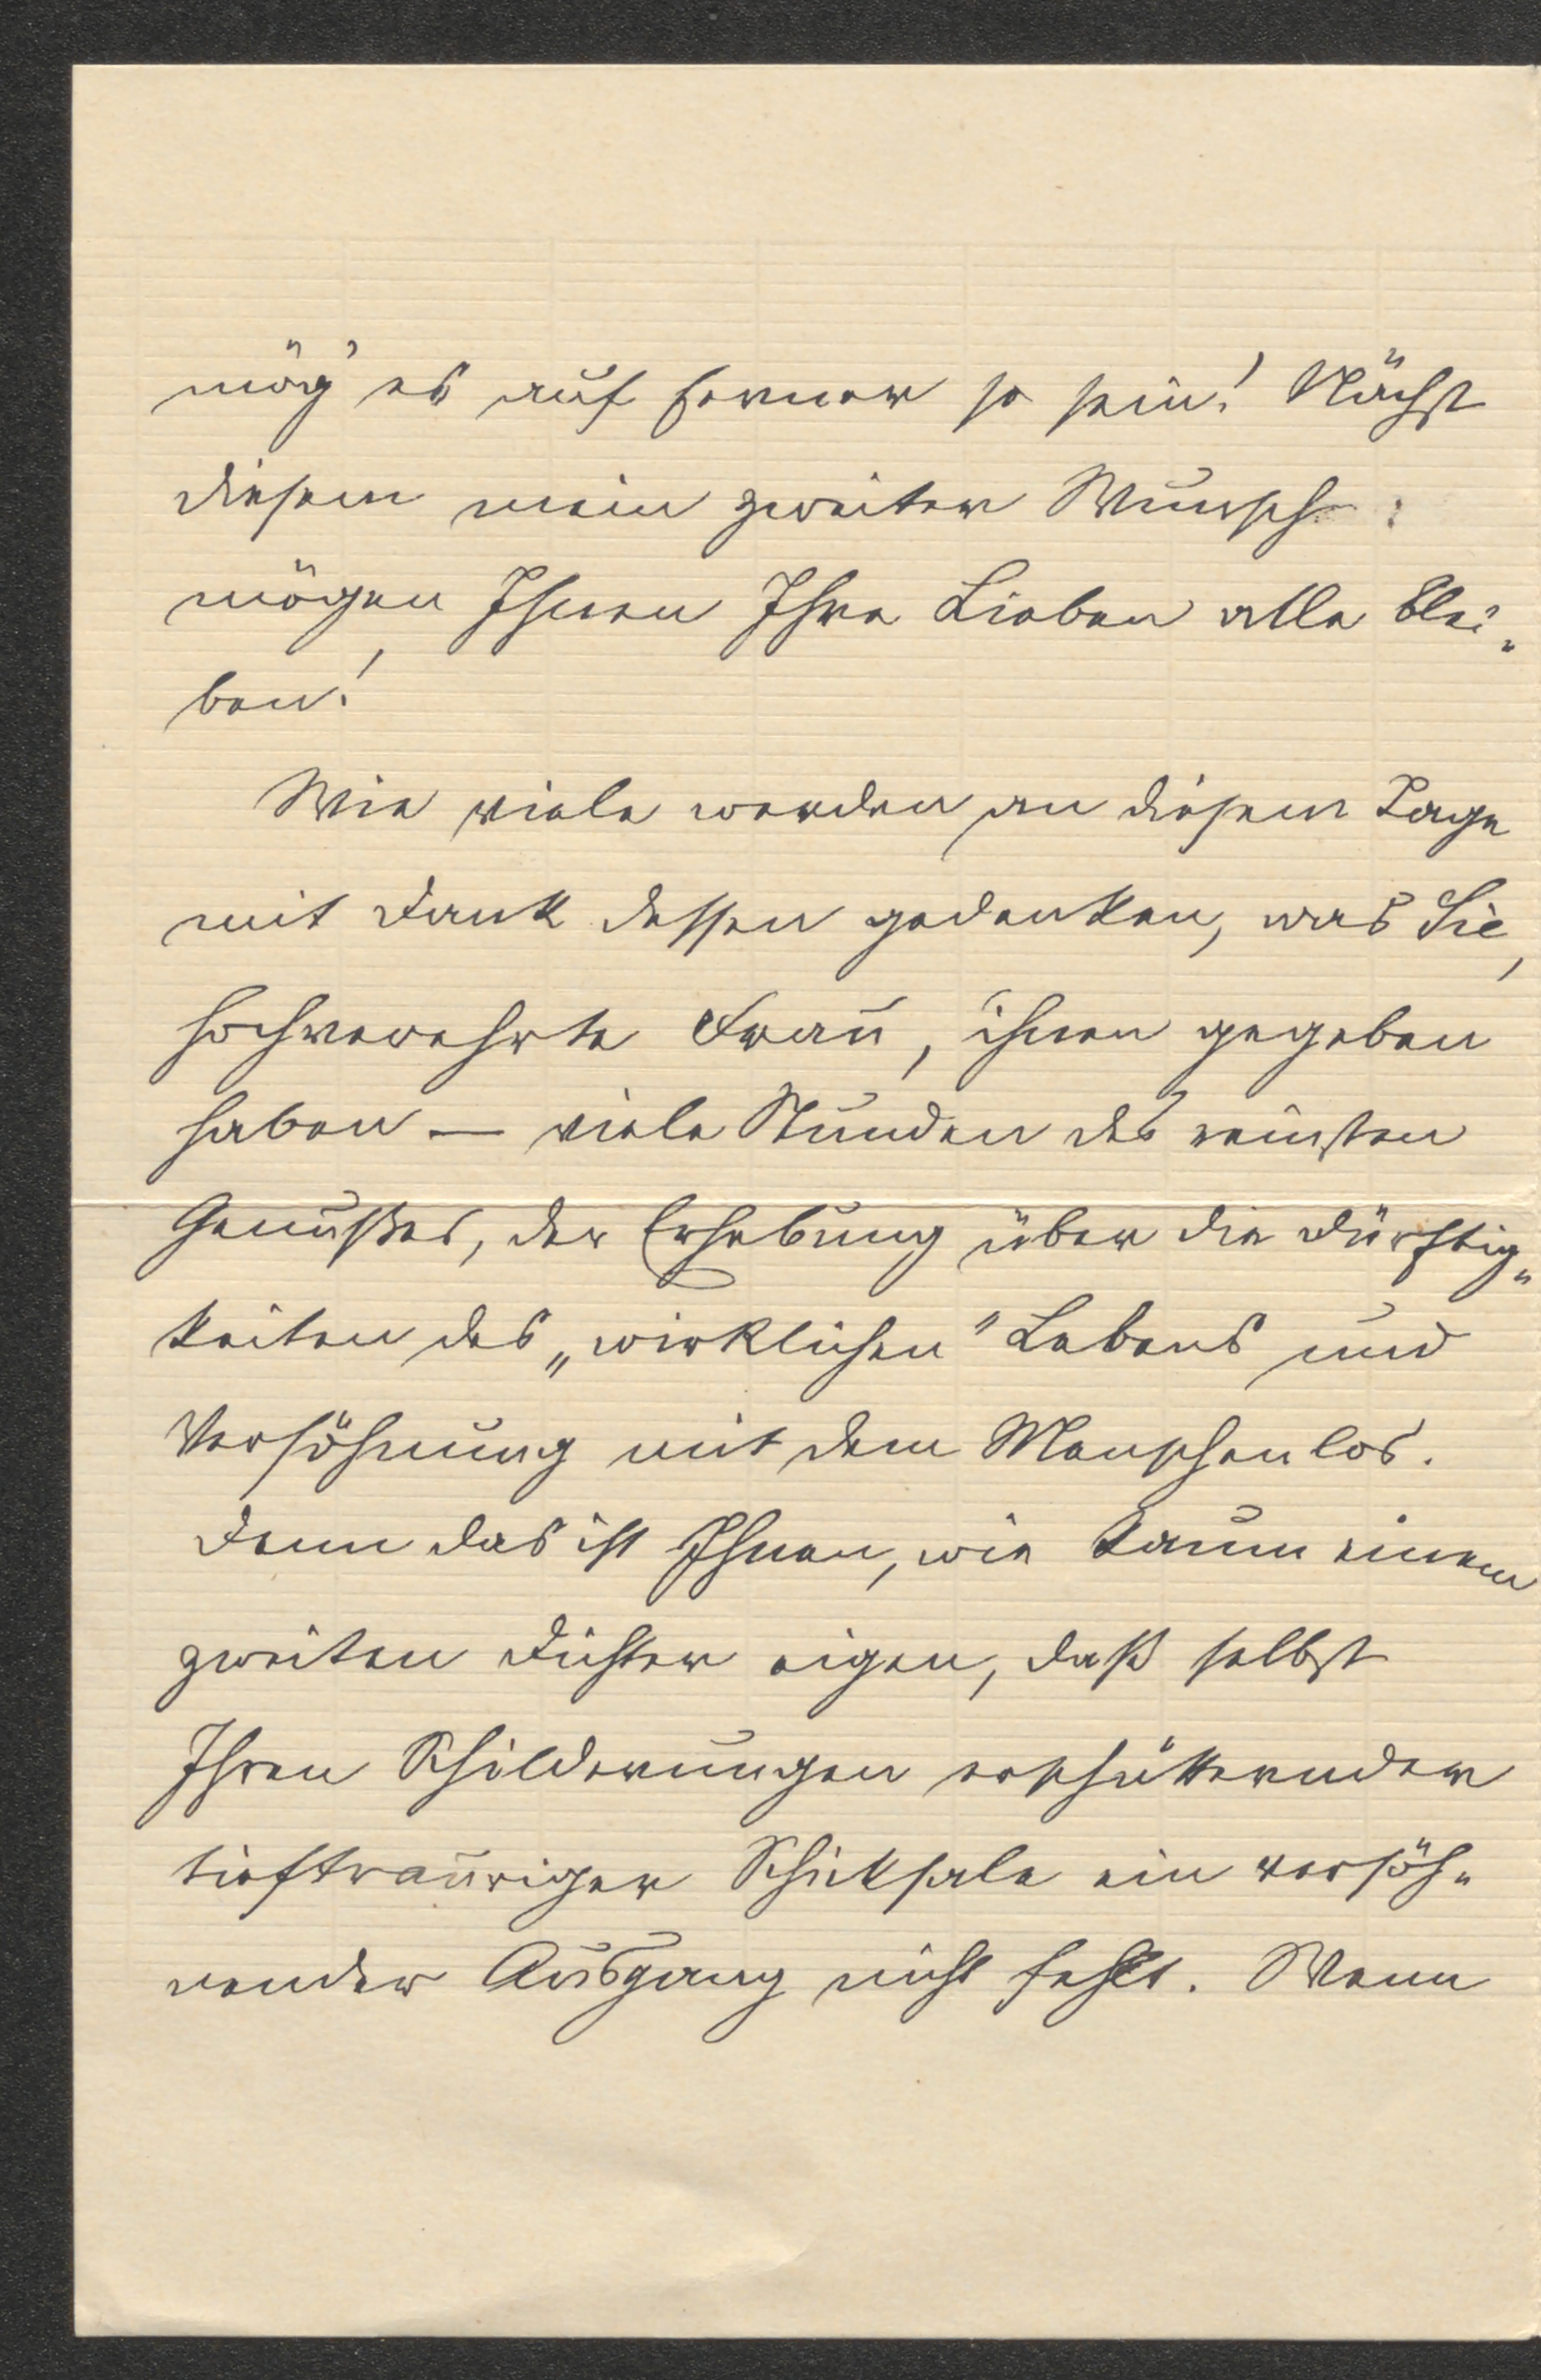 mög' es auch ferner so sein! Nächst
diesem mein zweiter Wunsch:
mögen Ihnen Ihre Lieben alle blei-
ben!
Wie viele werden an diesem Tage
mit Dank dessen gedenken, was Sie,
hochverehrte Frau, ihnen gegeben
haben — viele Stunden des reinsten
Genußes, der Erhebung über die Dürftig-
keiten des „wirklichen" Lebens und
Versöhnung mit dem Menschenlos.
Denn das ist Ihnen, wie kaum einem
zweiten Dichter eigen, daß selbst
Ihren Schilderungen erschütternder
tieftrauriger Schicksale ein versöh-
nender Ausgang nicht fehlt. Wenn